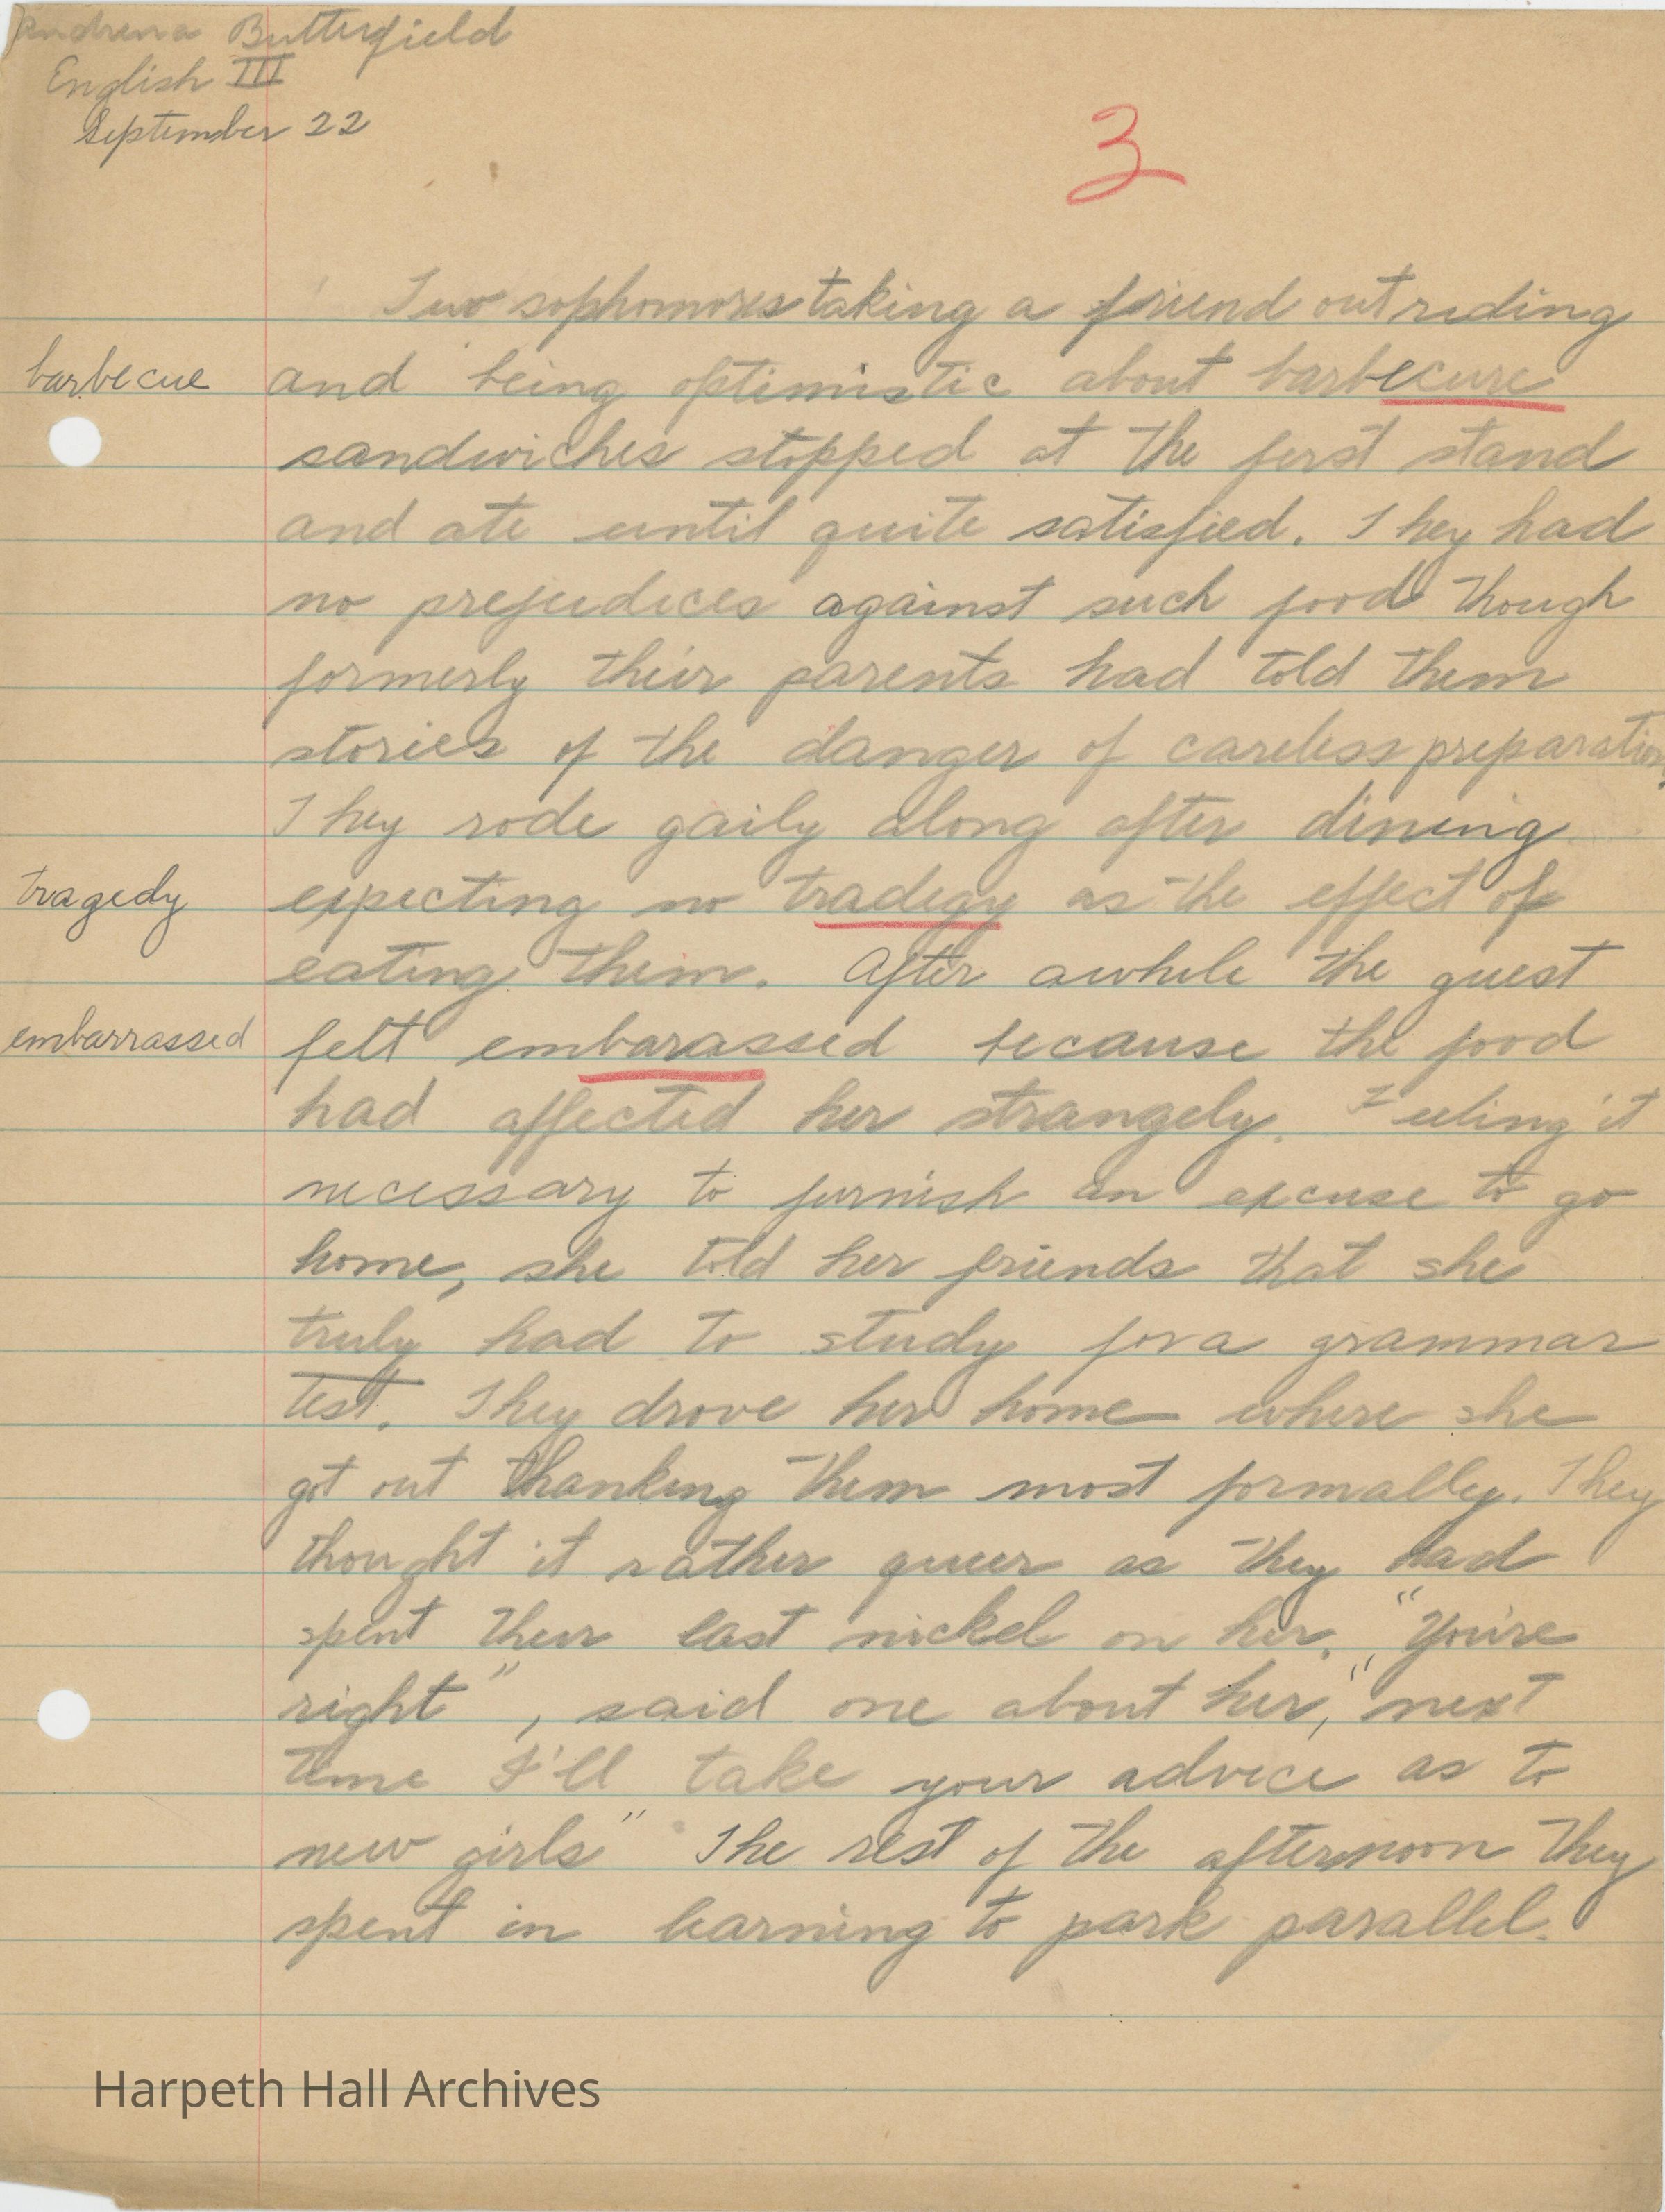 Andrena Butterfield
English III
September 22
3
Two sophomores taking a friend out riding
barbecue and being optimistic about barbecure
sandwiches stopped at the first stand
and ate until quite satisfied. They had
no prejudices against such food though
formerly their parents had told them
stories of the danger of careless preparation.
They rode gaily along after dining
tragedy expecting no tradegy as the effect of
eating them. After awhile the guest
embarrassed felt embarassed because the food
had affected her strangely. Feeling it
necessary to furnish an excuse to go
home, she told her friends that she
truly had to study for a grammar
test. They drove her home where she
got out thanking them most formally. They
thought it rather queer as they had
spent their last nickel on her. "You're
right", said one about her, "next
time I'll take your advice as to
new girls" The rest of the afternoon they
spent in learning to park parallel.
Harpeth Hall Archives